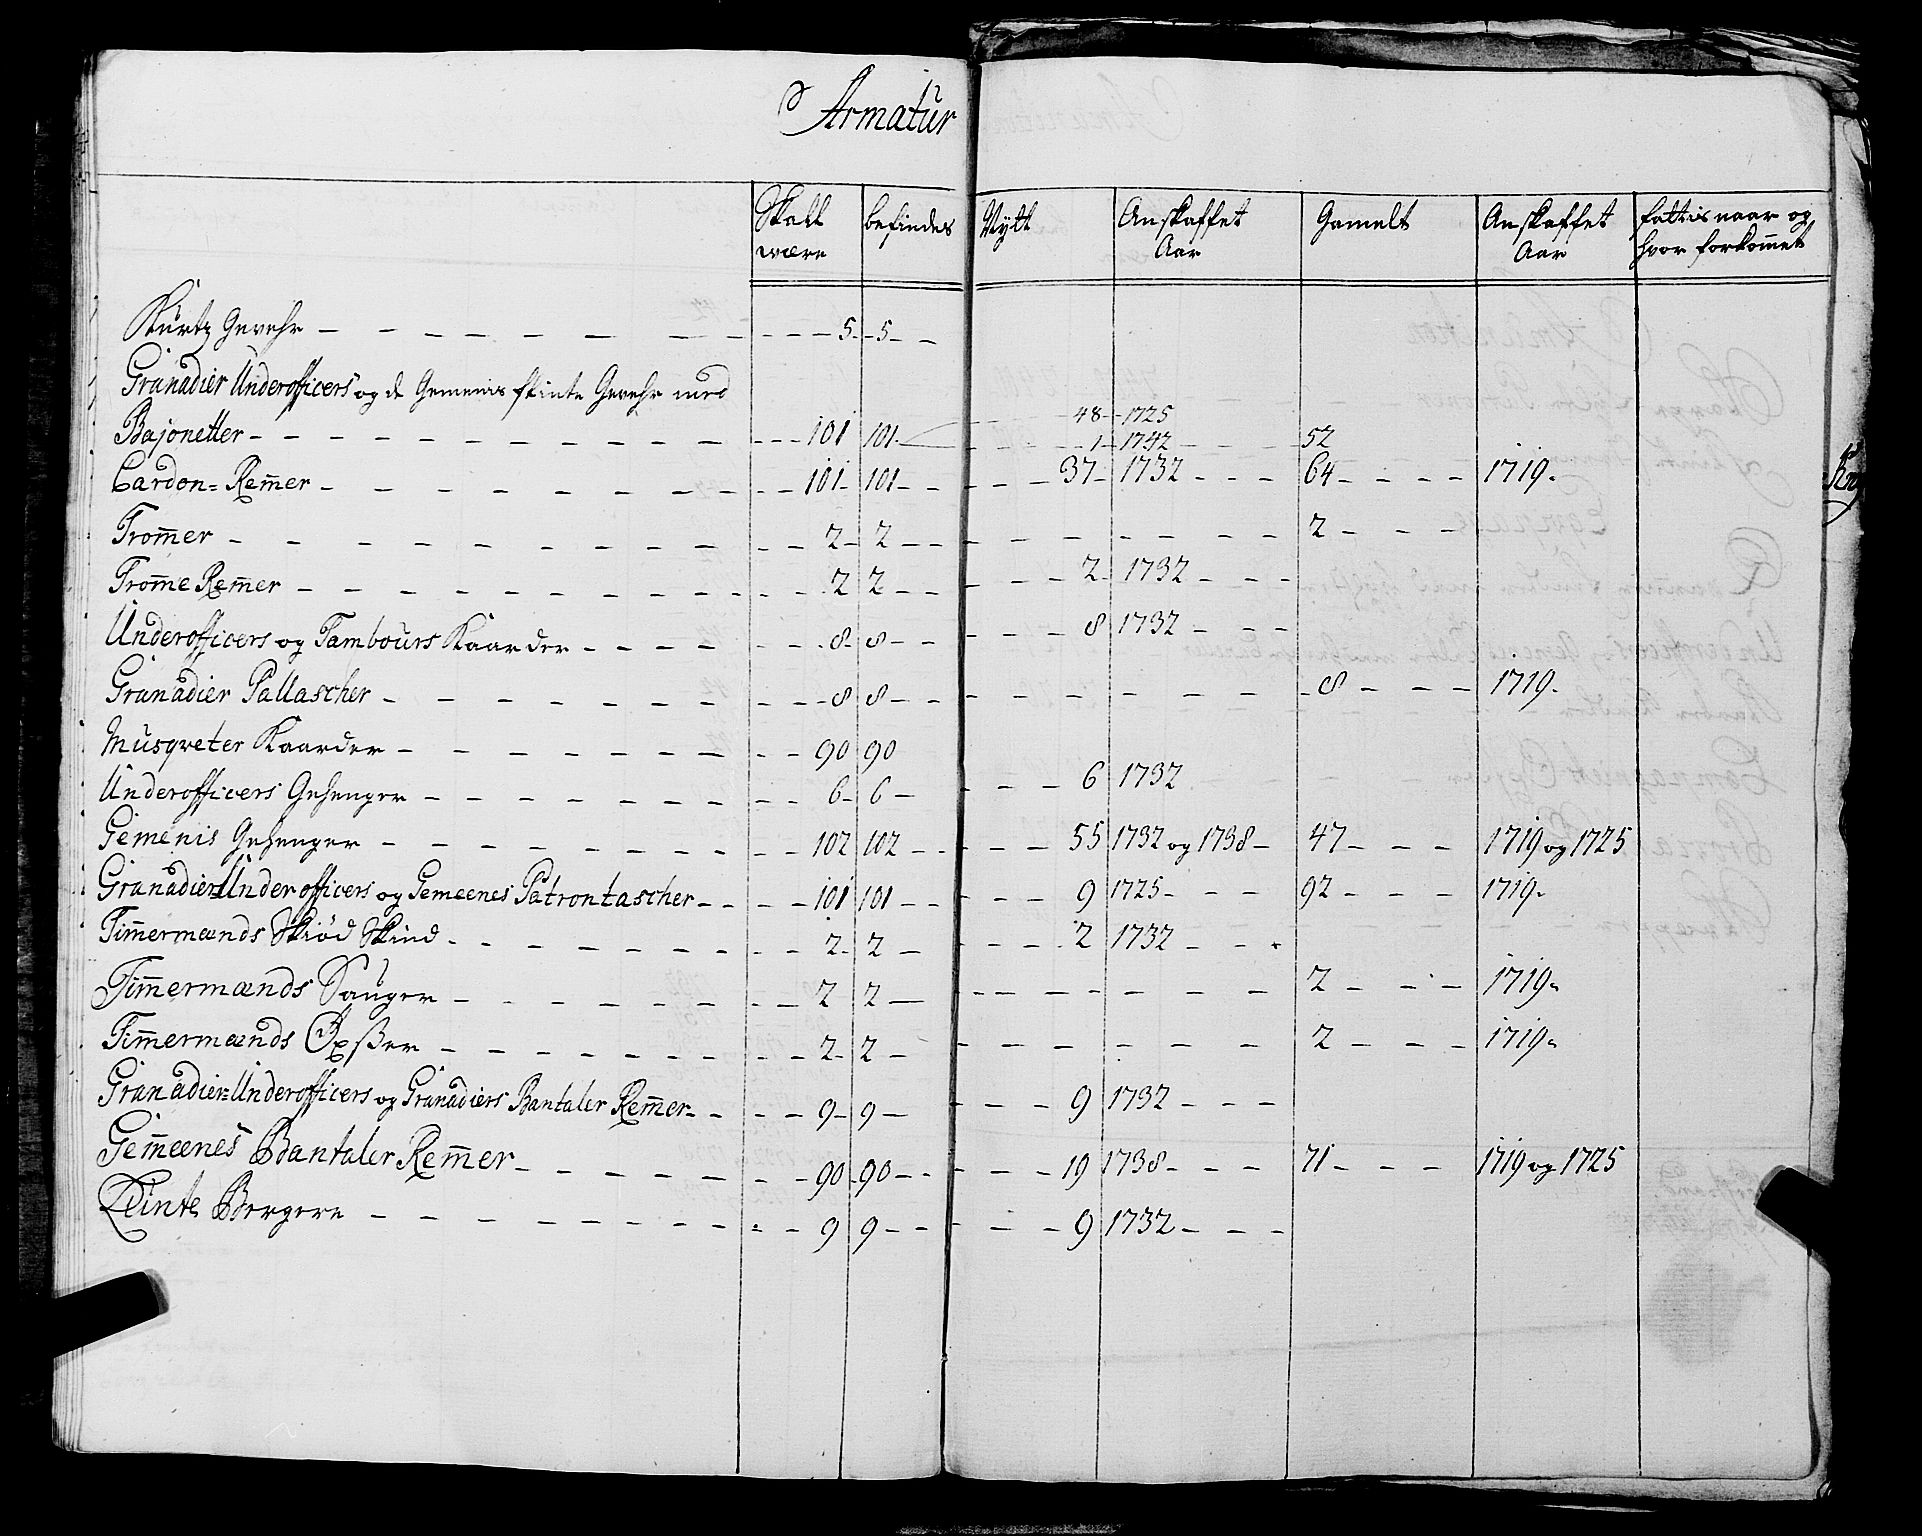 Armatur
Skall være | befindes | Nÿtt | Anskaffet Aar | Gamelt | Anskaffet Aar | fattis naar og hvor forkom̅et
Kurtz Gevehr – 5 – 5
Granadier Underofficers og de Gemenis flinte Gevehr med – 48 – 1725
Bajonetter – 101 101 – 1 – 1742 – 52
Cardon= Rem̅er – 101 – 101 – 37 – 1732 – 64 – 1719
Trom̅er – 2 – 2 – 2
Trom̅e Rem̅er – 2 2 – 2 – 1732
Underofficers og Tambours Kaarder – 8 – 8 – 8 1732
Granadier Pallascher – 8 8 – 8 – 1719
Musqveter Kaarder – 90 90
Underofficers Gehenger – 6 – 6 – 6 1732
Gemenis Gehenger – 102 102 – 55 1732 og 1738 – 47 – 1719 og 1725
Granadier=Underofficers og Gemeenes Patrontascher – 101 101 – 9 1725 – 92 – 1719
Tim̅ermænds Skiød Skind – 2 – 2 – 2 1732
Tim̅ermænds Sauger – 2 2 – 2 – 1719
Tim̅ermænds Øxßer – 2 – 2 – 2 – 1719
Granadier=Underofficers og Granadiers Bantaler Rem̅er – 9 – 9 – 9 1732
Gem̅eenes Bantaler Rem̅er – 90 – 90 – 19 1738 – 71 – 1719 og 1725
Bergere – 9 9 – 9 1732